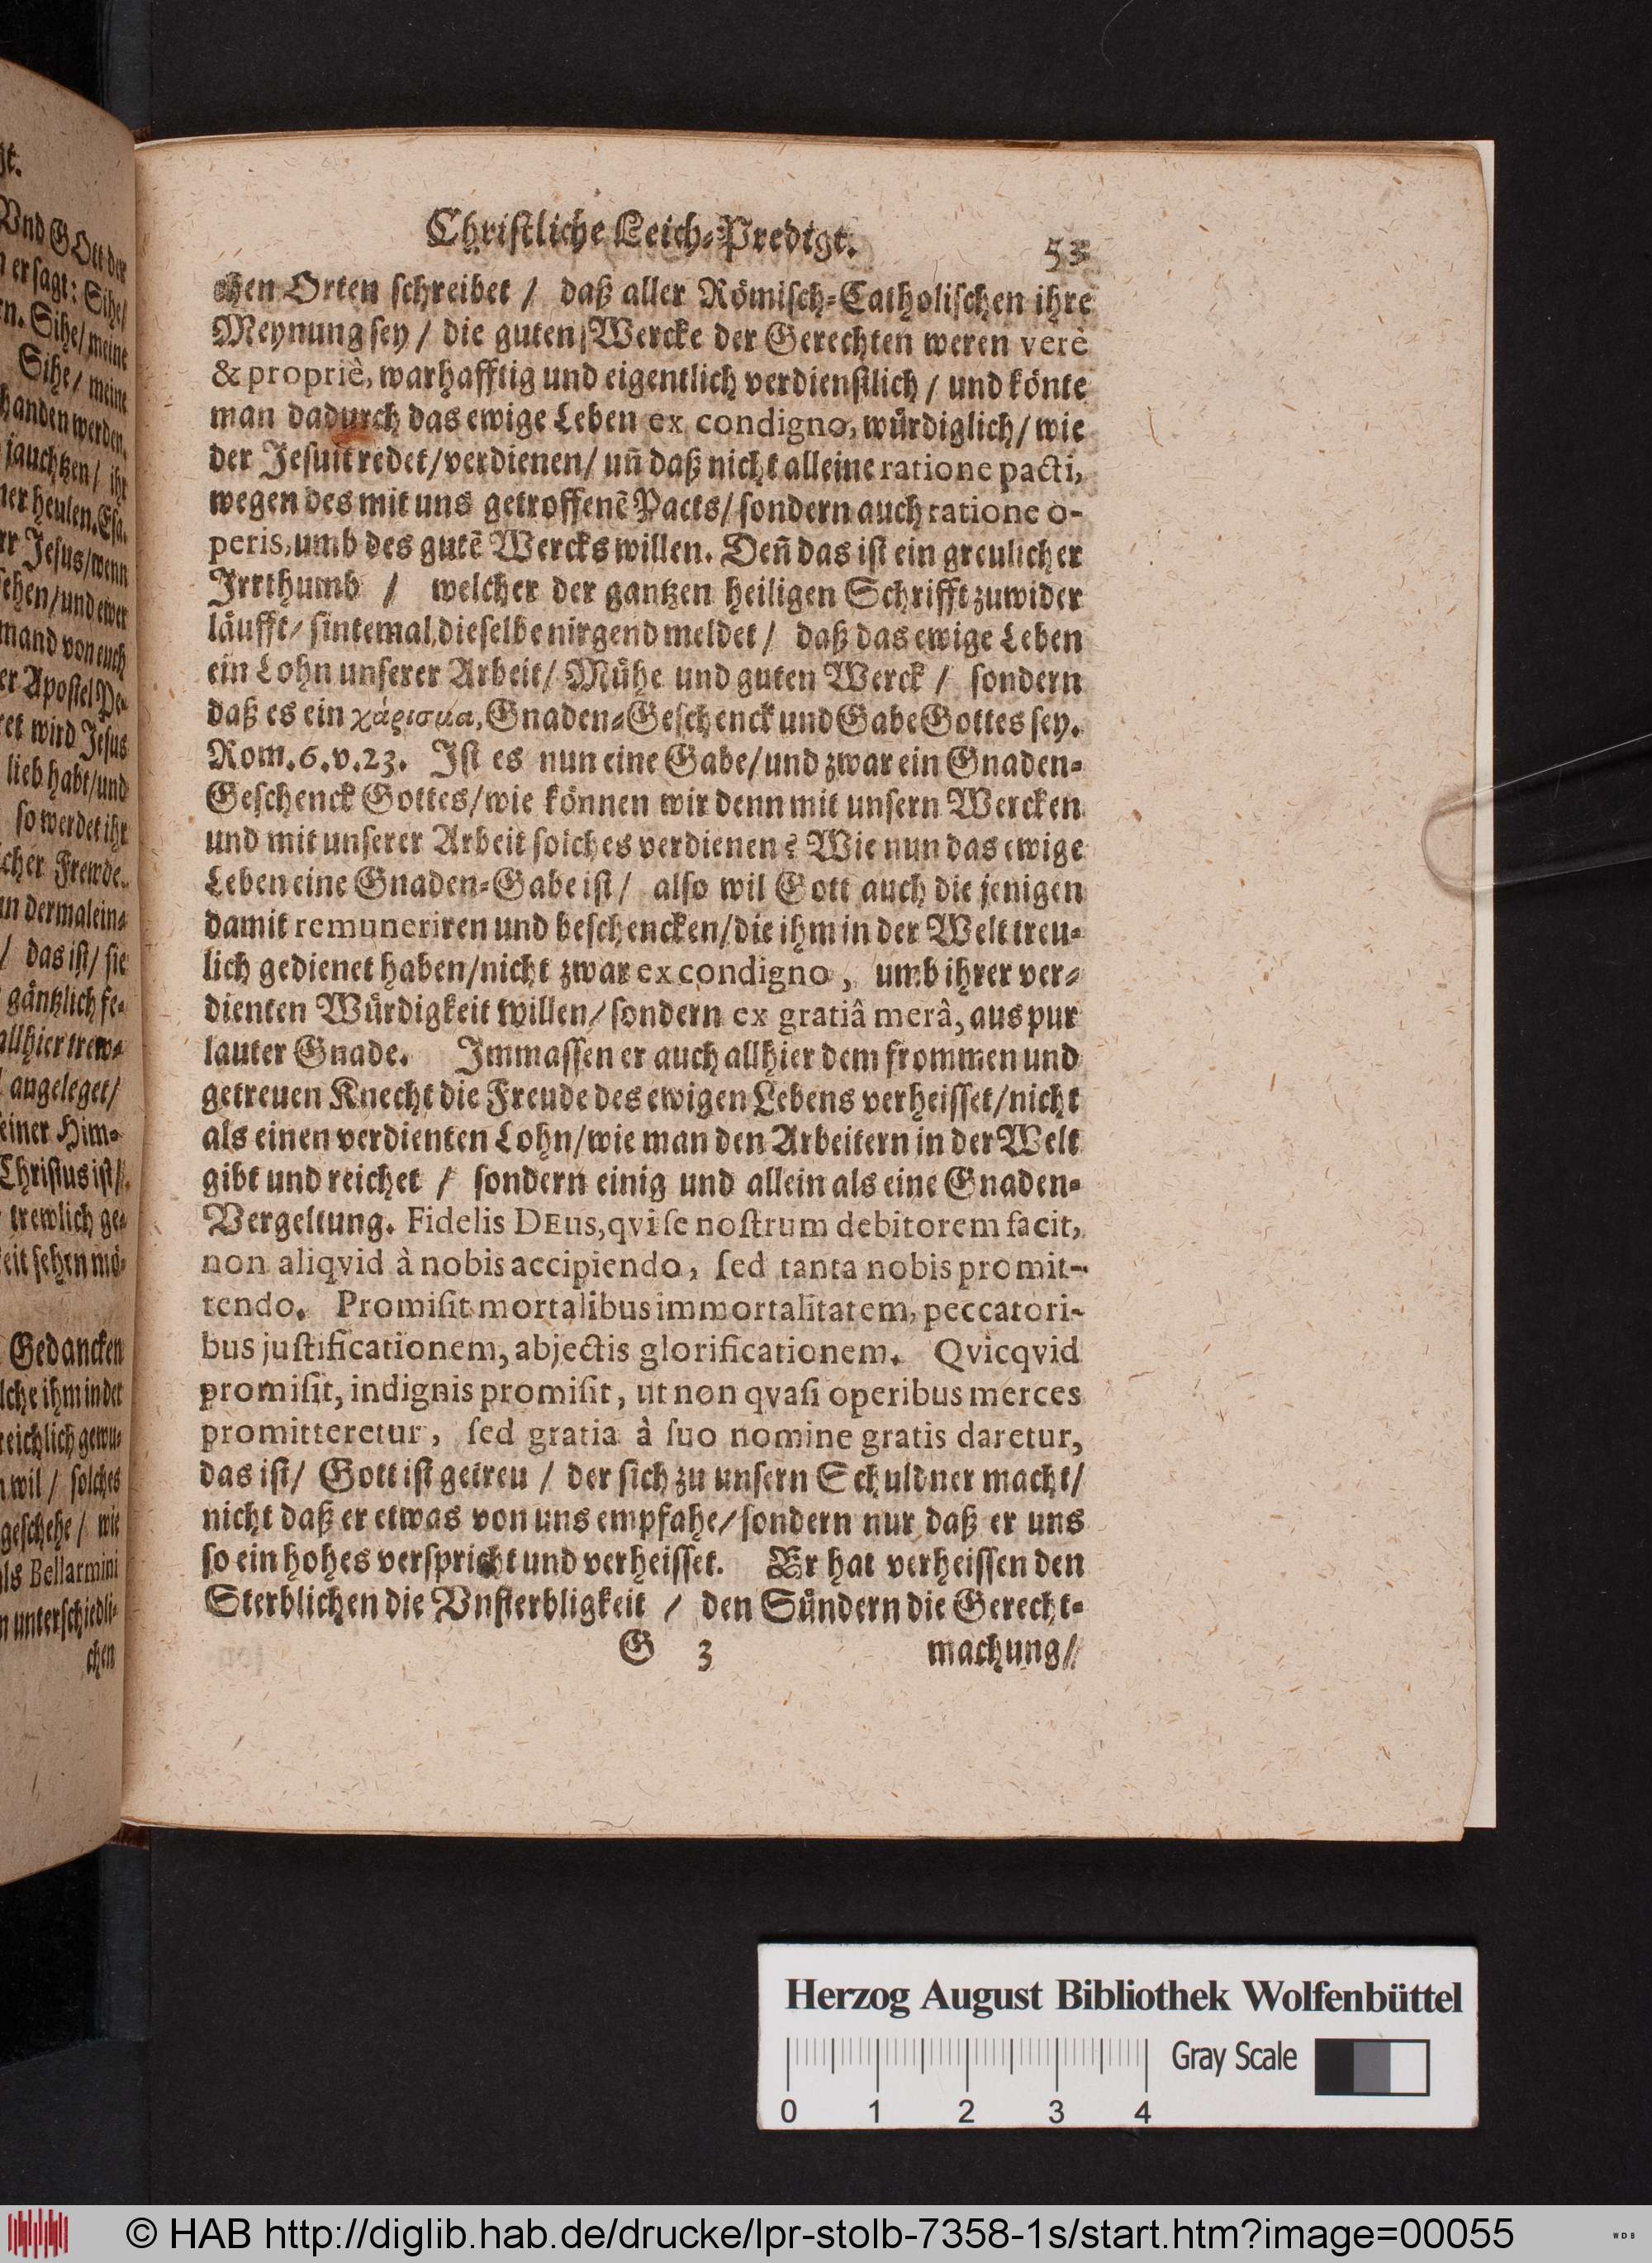 Christliche Leich-Predigt. 53
chen Orten schreibet / daß aller Römisch-Catholischen ihre
Meynung sey / die guten Wercke der Gerechten weren verè
& propriè, warhafftig und eigentlich verdienstlich / und könte
man dadurch das ewige Leben ex condigno, würdiglich / wie
der Jesuit redet / verdienen / uñ daß nicht alleine ratione pacti,
wegen des mit uns getroffenẽ Pacts / sondern auch ratione o-
peris, umb des gutẽ Wercks willen. Deñ das ist ein greulicher
Irrthumb / welcher der gantzen heiligen Schrifft zuwider
läufft / sintemal dieselbe nirgend meldet / daß das ewige Leben
ein Lohn unserer Arbeit / Mühe und guten Werck / sondern
daß es ein χάρισμα, Gnaden-Geschenck und Gabe Gottes sey.
Rom. 6. v. 23. Ist es nun eine Gabe / und zwar ein Gnaden-
Geschenck Gottes / wie können wir denn mit unsern Wercken
und mit unserer Arbeit solches verdienen? Wie nun das ewige
Leben eine Gnaden-Gabe ist / also wil Gott auch die jenigen
damit remuneriren und beschencken / die ihm in der Welt treu-
lich gedienet haben / nicht zwar ex condigno, umb ihrer ver-
dienten Würdigkeit willen / sondern ex gratiâ merâ, aus pur
lauter Gnade. Immassen er auch allhier dem frommen und
getreuen Knecht die Freude des ewigen Lebens verheisset / nicht
als einen verdienten Lohn / wie man den Arbeitern in der Welt
gibt und reichet / sondern einig und allein als eine Gnaden-
Vergeltung. Fidelis DEus, qvi se nostrum debitorem facit,
non aliqvid à nobis accipiendo, sed tanta nobis promit-
tendo. Promisit mortalibus immortalitatem, peccatori-
bus justificationem, abjectis glorificationem. Qvicqvid
promisit, indignis promisit, ut non qvasi operibus merces
promitteretur, sed gratia à suo nomine gratis daretur,
das ist / Gott ist getreu / der sich zu unsern Schuldner macht /
nicht daß er etwas von uns empfahe / sondern nur daß er uns
so ein hohes verspricht und verheisset. Er hat verheissen den
Sterblichen die Vnsterbligkeit / den Sündern die Gerecht-
G 3 machung /
Vnd GOtt der
er sagt: Sihe /
Sihe / meine
Sihe / meine
handen werden.
jauchtzen / ihr
heulen. Esa.
Jesus / wenn
sehen / und ewer
mand von euch
er Apostel Pe-
et wird Jesus
lieb habt / und
so werdet ihr
cher Frewde.
dermalein-
/ das ist / sie
gäntzlich se-
allhier trew-
angeleget /
einer Him-
Christus ist /
trewlich ge-
eit sehen mö-
Gedancken
lche ihm in der
reichlich gewu-
wil / solches
geschehe / wie
als Bellarmini
n unterschiedli-
chen
Herzog August Bibliothek Wolfenbüttel
Gray Scale
0 1 2 3 4
© HAB http://diglib.hab.de/drucke/lpr-stolb-7358-1s/start.htm?image=00055
WDB